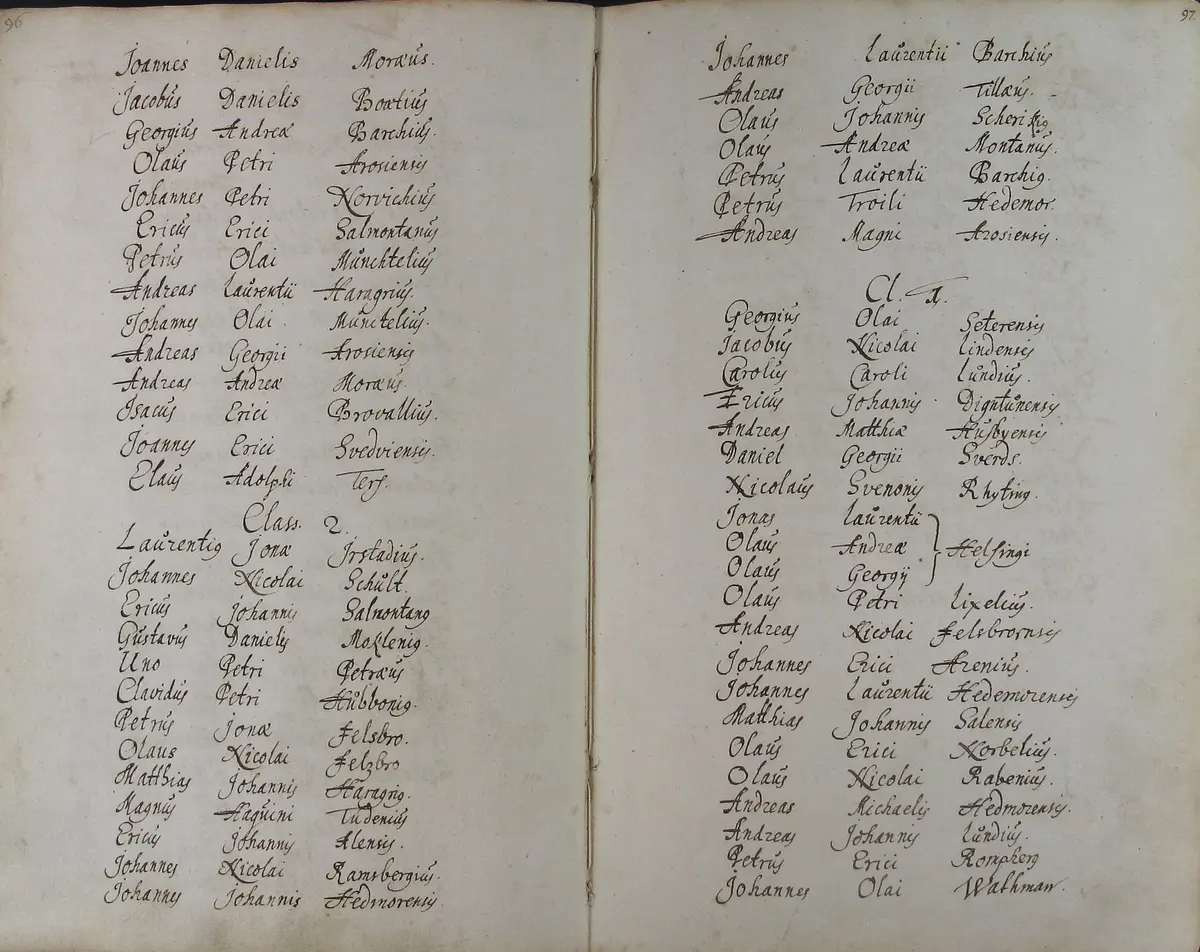 96
Joannes Danielis Moræus.
Jacobus Danielis Boætius
Georgius Andreæ Barchius.
Olaus Petri Arosiensis
Johannes Petri Norvichius
Ericus Erici Salmontanus
Petrus Olai Munchtelius
Andreas Laurentii Haragrius.
Johannes Olai Munctelius.
Andreas Georgii Arosiensis
Andreas Andreæ Moræus.
Isacus Erici Brovallius.
Joannes Erici Svedviensis.
Elaus Adolphi Ters.
Class. 2.
Laurentius Jonæ Irstadius.
Johannes Nicolai Schult.
Ericus Johannis Salmontanus
Gustavus Danielis Moklenius.
Uno Petri Petræus
Clavidus Petri Hubbonius.
Petrus Jonæ Felsbro.
Olaus Nicolai Felzbro
Matthias Johannis Haragrius.
Magnus Haquini Tudenius
Ericus Johannis Alensis.
Johannes Nicolai Ramsbergius.
Johannes Johannis Hedmorensis.
97.
Johannes Laurentii Barchius
Andreas Georgii Tillæus.
Olaus Johannis
Olaus Andreæ Montanus.
Petrus Laurentii Barchius.
Petrus Troili Hedemor.
Andreas Magni Arosiensis.
Cl. 1.
Georgius Olai Seterensis
Jacobus Nicolai Lindensis
Carolus Caroli Lundius.
Ericus Johannis Digntunensis
Andreas Matthiæ Husbyensis
Daniel Georgii Sverds.
Nicolaus Svenonis Rhyting.
Jonas Laurentii
Olaus Andreæ Helsingi
Olaus Georgij
Olaus Petri Lixelius.
Andreas Nicolai Felsbroensis
Johannes Erici Arenius.
Johannes Laurentii Hedemorensis
Matthias Johannis Salensis
Olaus Erici Norbelius.
Olaus Nicolai Rabenius.
Andreas Michaelis Hedmorensis.
Andreas Johannis Lundius.
Petrus Erici
Johannes Olai Wathman.